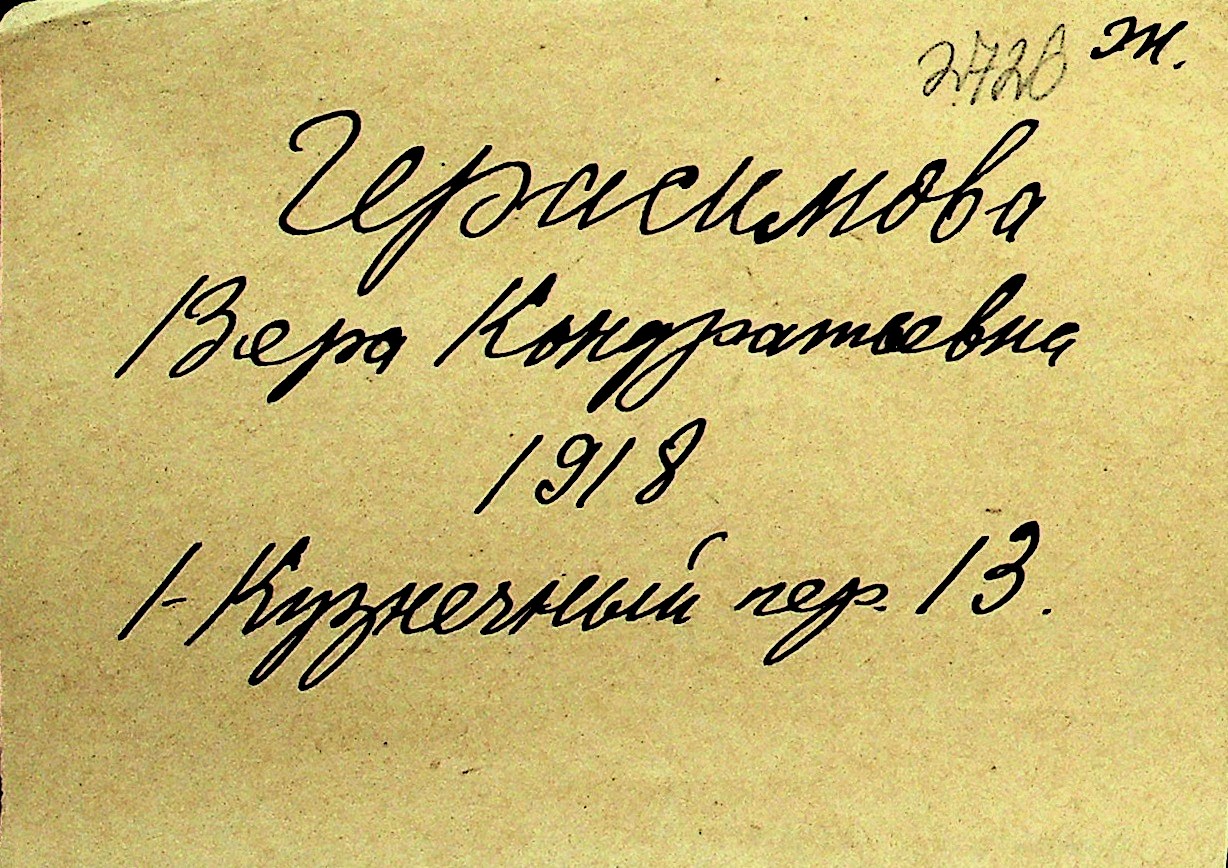 ж.
Герасимова
Вера Кондратьевна
1918
1-Кузнечный пер. 13.